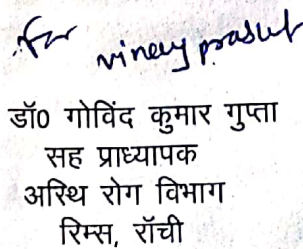 for vineey prasad
डॉ0 गोविंद कुमार गुप्ता
सह प्राध्यापक
अस्थि रोग विभाग
रिम्स, रॉची